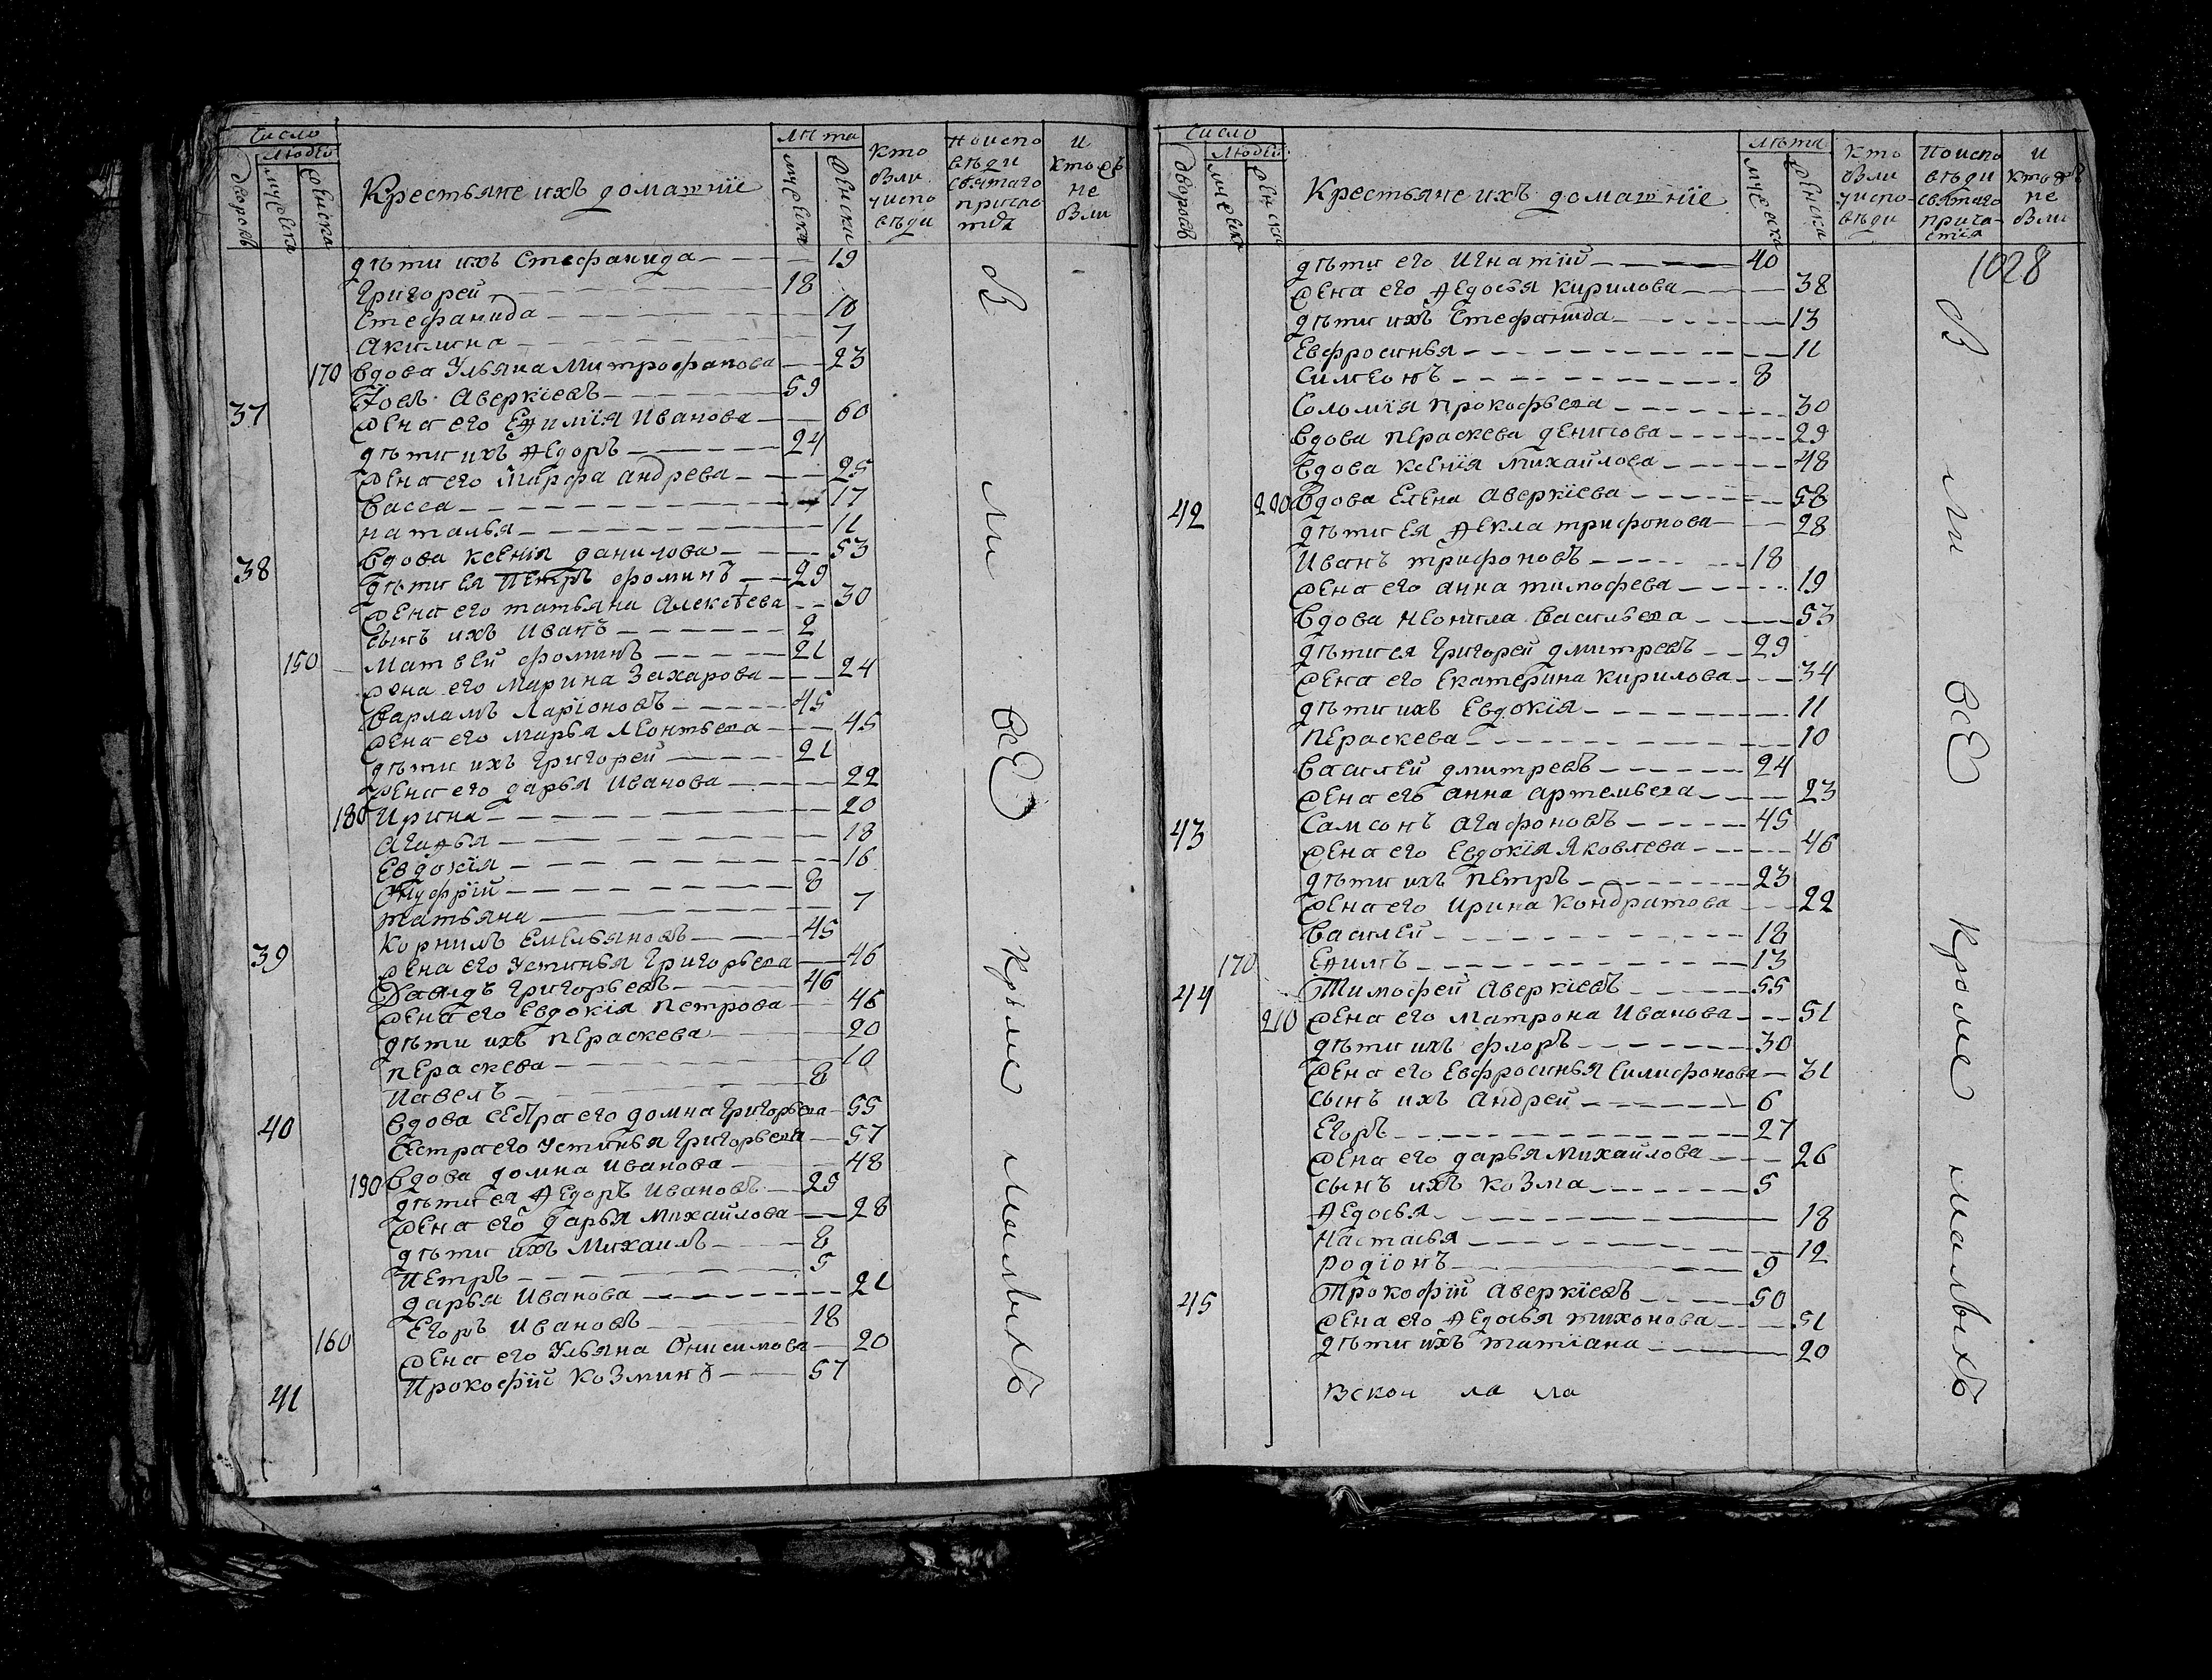 Число
Людей
дворовъ
мужеска
женска
Крестьяне ихъ домашнїе
лѣта
мужеска
женски
кто
были
у испо
вѣди
Поиспо
вѣди
святаго
и
кто
не
были
дѣти ихъ Стефанида 19
Григорей 18
Стефанида 10
Акилина 7
170 вдова Ульяна Митрофанова 23
37 Іовъ Аверкїевъ 59
жена его Еѳимїя Иванова 60
дѣти ихъ Ѳедоръ 24
жена его Марфа Андрева 25
Васса 17
наталья 11
38 вдова ксенїя данилова 53
дѣти ея Петръ фоминъ 29
жена его татьяна Алексѣева 30
сынъ ихъ Иванъ 2
150 Матвей фоминъ 21
жена его Марина Захарова 24
Варламъ Ларїоновъ 45
жена его Марья Леонтьева 45
дѣти ихъ Григорей 21
жена его дарья Иванова 22
180 Ирина 20
Агаѳья 18
Евдокїя 16
Онуфрїй 8
татьяна 7
39 Корнилъ Емельяновъ 45
жена его Устинья Григорьева 46
Давидъ Григорьевъ 46
жена его Евдокїя Петрова 46
дѣти ихъ Пераскева 20
Пераскева 10
Павелъ 8
40 вдова сестра его домна Григорьева 55
Сестра его Устинья Григорьева 57
190 вдова домна Иванова 48
дѣти ея Ѳедоръ Ивановъ 29
жена его дарья Михайлова 28
дѣти ихъ Михаилъ 8
Петръ 5
дарья Иванова 21
Егоръ Ивановъ 18
160 жена его Ульяна Онисимова 20
41 Прокофїй Козминъ 57
Б ы ли всѣ кромѣ малыхъ
Число
Людей
дворовъ
мужеска
женска
Крестьяне ихъ домашнїе
лѣта
мужеска
женска
кто
были
у испо-
вѣди
Поиспо
вѣди
святаго
прича-
стїя
и
кто
не
были
1028
дѣти его Игнатїй 40
жена его Ѳедосья Кирилова 38
дѣти ихъ Стефанида 13
Евфросинья 11
Симеонъ 8
Соломїя Прокофьева 30
вдова Пераскева денисова 29
вдова ксенїя Михайлова 48
42 200 вдова Елена Аверкїева 58
дѣти ея Ѳекла трифонова 28
Иванъ трифоновъ 18
жена его анна тимофева 19
вдова Неонила Васильева 53
дѣти ея Григорей дмитревъ 29
жена его Екатерина Кирилова 34
дѣти ихъ Евдокїя 11
Пераскева 10
Василей дмитревъ 24
жена его анна артемьева 23
43 Самсонъ агафоновъ 45
жена его Евдокїя Яковлева 46
дѣти ихъ Петръ 23
жена его Ирина Кондратова 22
Василей 18
170 Еѳимъ 13
44 Тимофей Аверкїевъ 55
210 жена его Матрона Иванова 51
дѣти ихъ флоръ 30
жена его Евфросинья Силифонова 31
сынъ ихъ Андрей 6
Егоръ 27
жена его дарья Михайлова 26
сынъ ихъ Козма 5
Ѳедосья 18
Настасья 12
Родїонъ 9
45 Прокофїй Аверкїевъ 50
жена его Ѳедосья тихонова 51
дѣти ихъ татїана 20
ла ла
Б ы ли всѣ кромѣ малыхъ